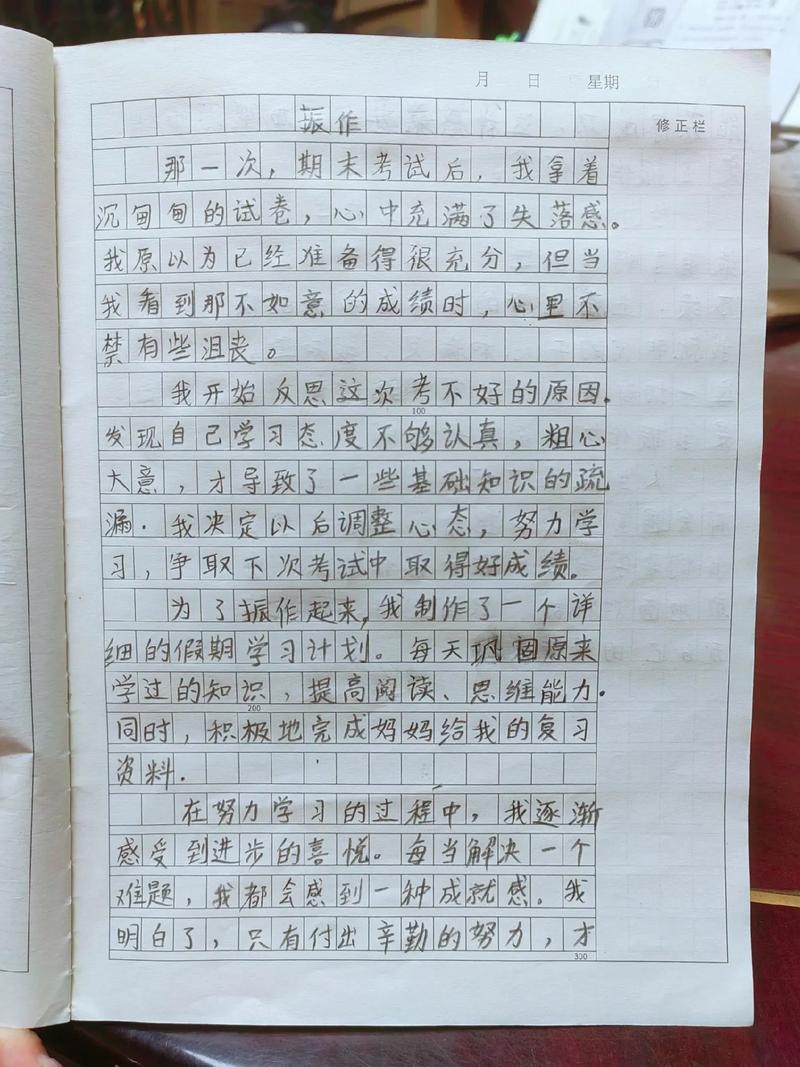 月 日 星期
修正栏
振作
那一次，期末考试后，我拿着
沉甸甸的试卷，心中充满了失落感。
我原以为已经准备得很充分，但当
我看到那不如意的成绩时，心里不
禁有些沮丧。
我开始反思这次考不好的原因.
100
发现自己学习态度不够认真，粗心
大意，才导致了一些基础知识的疏
漏.我决定以后调整心态，努力学
习，争取下次考试中取得好成绩。
为了振作起来，我制作了一个详
细的假期学习计划。每天巩固原来
学过的知识，提高阅读、思维能力.
200
同时，积极地完成妈妈给我的复习
资料.
在努力学习的过程中，我逐渐
感受到进步的喜悦。每当解决一个
难题，我都会感到一种成就感。我
明白了，只有付出辛勤的努力，才
300